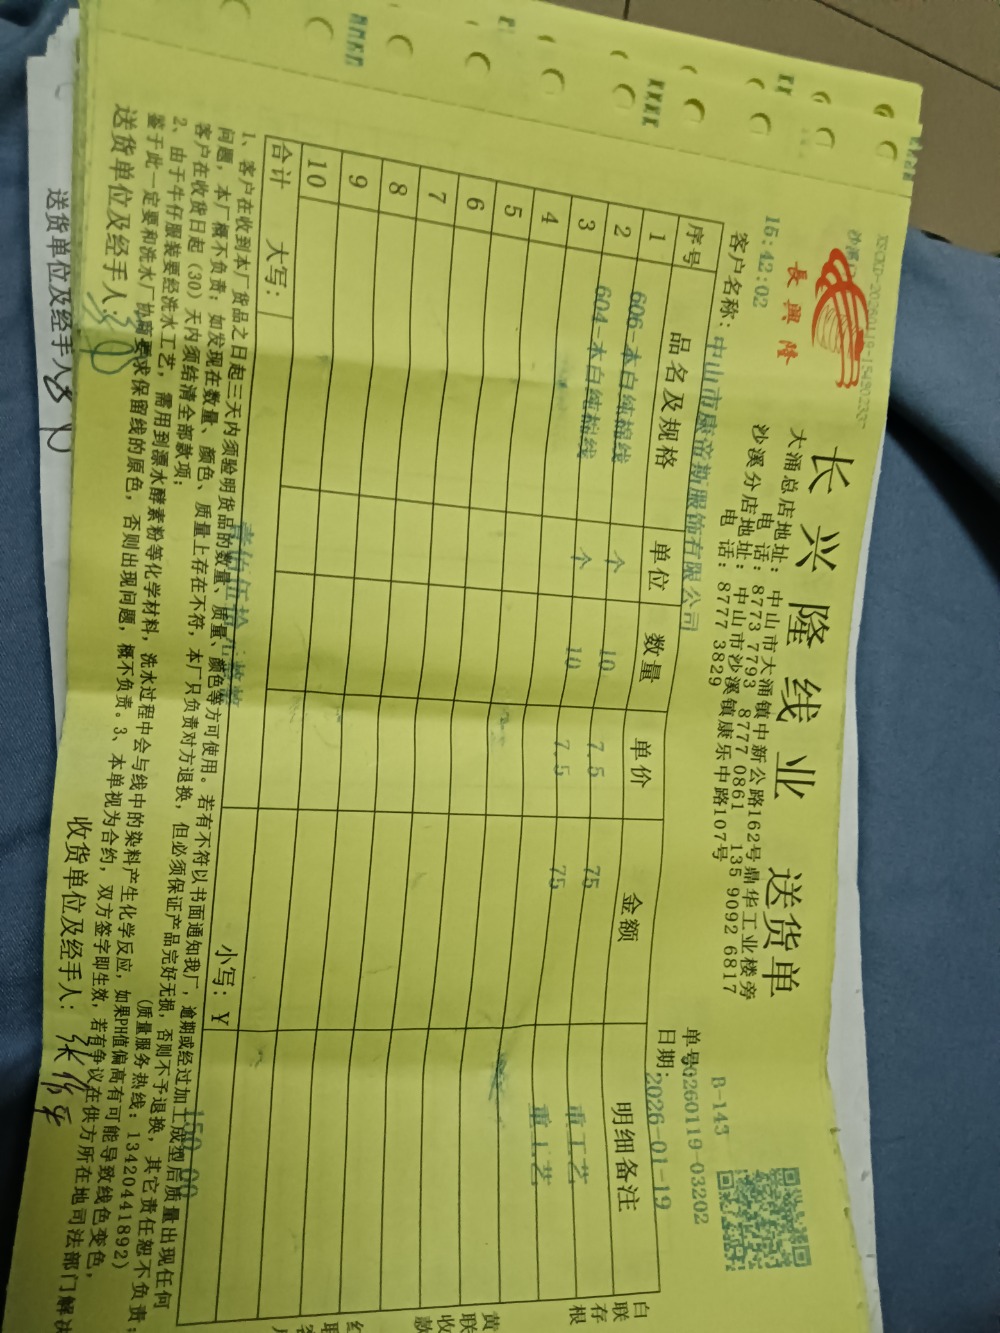 長興隆
长兴隆线业 送货单
大涌总店地址：中山市大涌镇中新公路162号鼎华工业楼旁
电话：8773 7793 8777 0861 135 9092 6817
沙溪分店地址：中山市沙溪镇康乐中路107号
电话：8777 3829
B-143
15:42:02
单号 0260119-03202
客户名称：中山市威帝斯服饰有限公司
日期：2026-01-19
序号 品名及规格 单位 数量 单价 金额 明细备注
1 606-本白纯棉线 个 10 7.5 75 重工艺
2 604-本白纯棉线 个 10 7.5 75 重工艺
3
4
5
6
7
8
9
10
合计 大写： 壹佰伍拾 小写：￥ 150.00
1、客户在收到本厂货品之日起三天内须验明货品的数量、质量、颜色等方可使用。若有不符以书面通知我厂，逾期或经过加工成型后质量出现任何
问题，本厂概不负责；如发现在数量、颜色、质量上存在不符，本厂只负责对方退换，但必须保证产品完好无损，否则不予退换，其它责任恕不负责；
客户在收货日起（30）天内须结清全部款项；
（质量服务热线：13420441892）
2、由于牛仔服装要经洗水工艺，需用到漂水酵素粉等化学材料，洗水过程中会与线中的染料产生化学反应，如果PH值偏高有可能导致线色变色，
鉴于此一定要和洗水厂协商要求保留线的原色，否则出现问题，概不负责。3、本单视为合约，双方签字即生效，若有争议在供方所在地司法部门解决
送货单位及经手人：
收货单位及经手人：
白联存根
黄联收款
送货单位及经手人